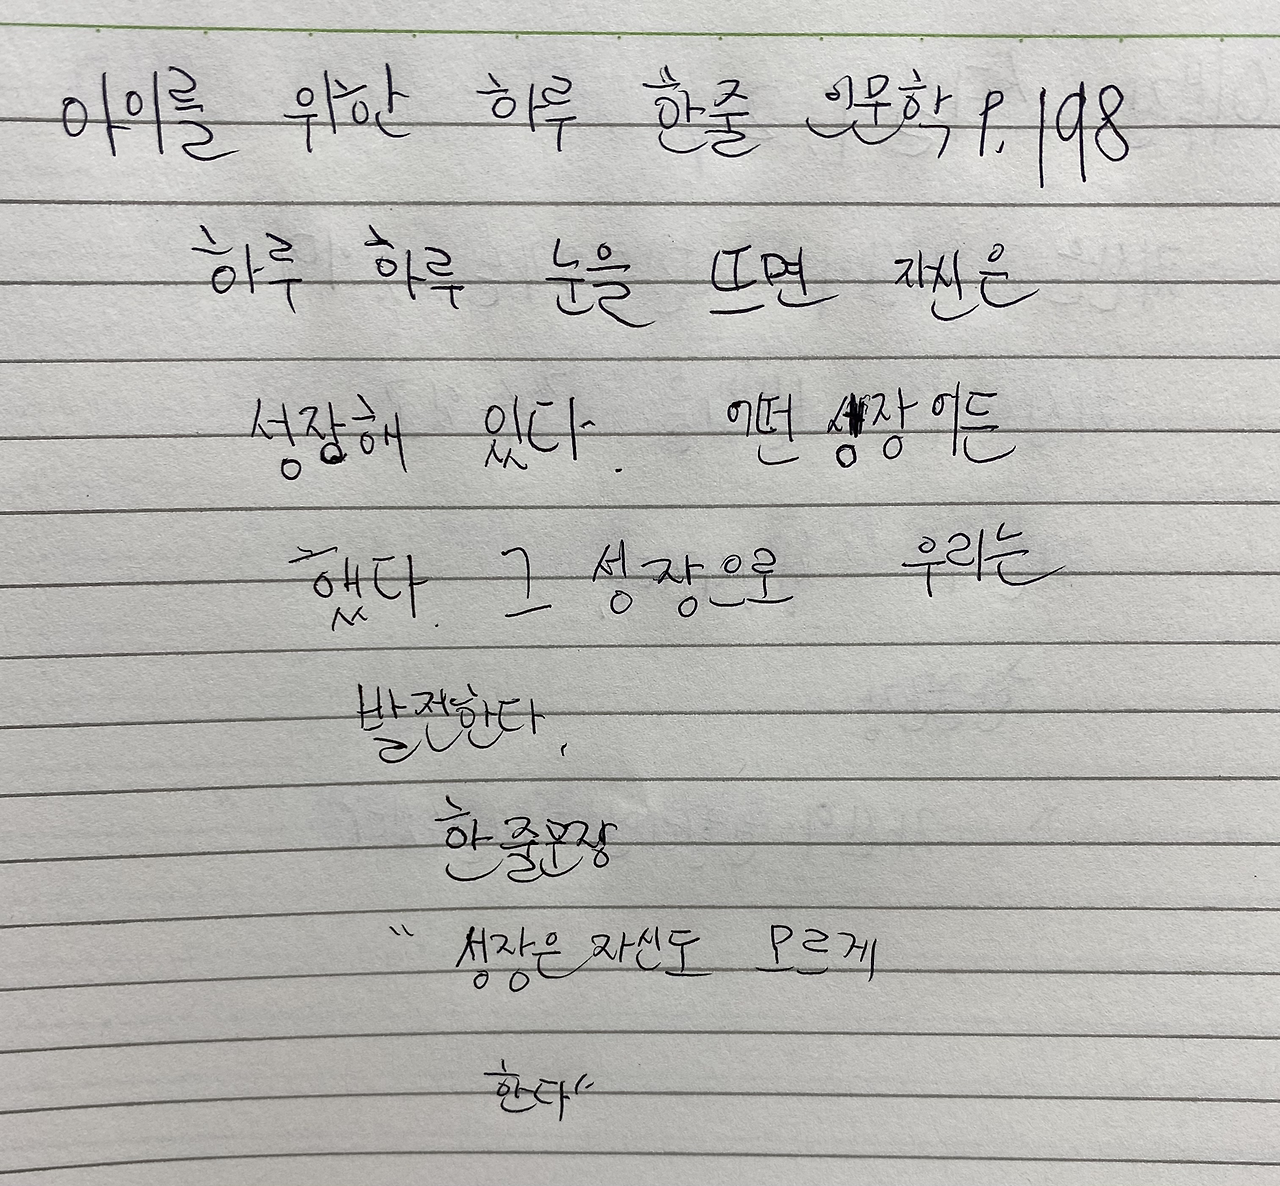 아이를 위한 하루 한줄 인문학 P.198
하루 하루 눈을 뜨면 자신은
성장해 있다. 어떤 성장이든
했다. 그 성장으로 우리는
발전한다.
한줄문장
"성장은 자신도 모르게
한다"